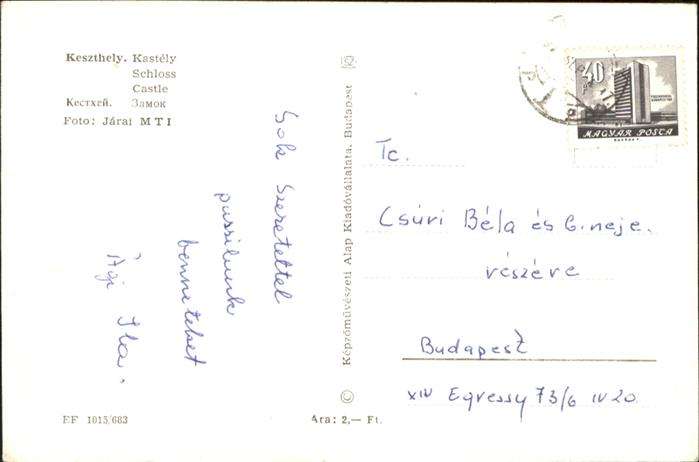 Keszthely. Kastély
Schloss
Castle
Кестхей. Замок
Foto: Járai MTI
Sok szeretettel
puszilunk
benneteket
Ági Ila.
EF 1015/683
Képzőművészeti Alap Kiadóvállalata, Budapest
Ára: 2,— Ft.
40
MAGYAR POSTA
Tc.
Csúri Béla és b. neje.
részére
Budapest
XIV Egressy 73/b IV 20.